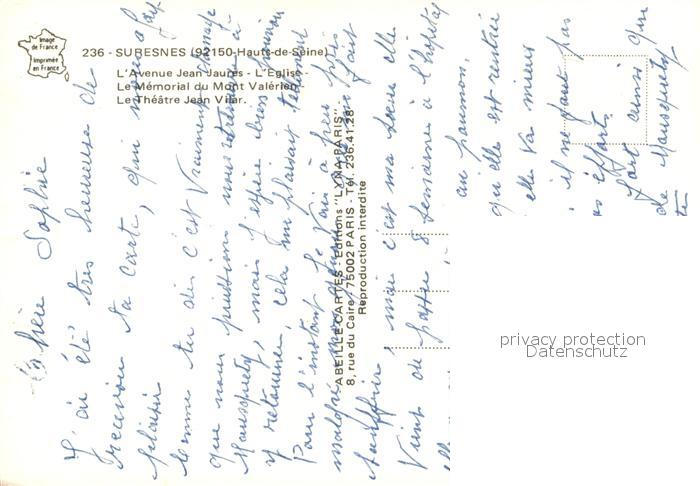 Image
de France
Imprimée
en France
236 - SURESNES (92150-Hauts-de-Seine)
L'Avenue Jean Jaurès - L'Eglise -
Le Mémorial du Mont Valérien -
Le Théâtre Jean Vilar.
ABEILLE-CARTES - Editions "LYNA-PARIS"
8, rue du Caire, 75002 PARIS - Tél. 236.41.28
Reproduction interdite
Chère Sophie
J'ai été très heureuse de
recevoir ta carte, qui nous a fait
plaisir
comme tu dis c'est vraiment dommage
que nous puissions nous retrouver à
Mausquety, mais j'espère bien pouvoir
y retourner, cela me plaisait tellement
Pour l'instant je vais à peu près
malgré
souffrir, mais c'est ma sœur elle
Vient de passer 8 semaines à l'hôpital
au poumon,
qu'elle est rentrée
elle va mieux
il ne faut pas
efforts
fort ainsi que
de Mausquety
privacy protection
Datenschutz